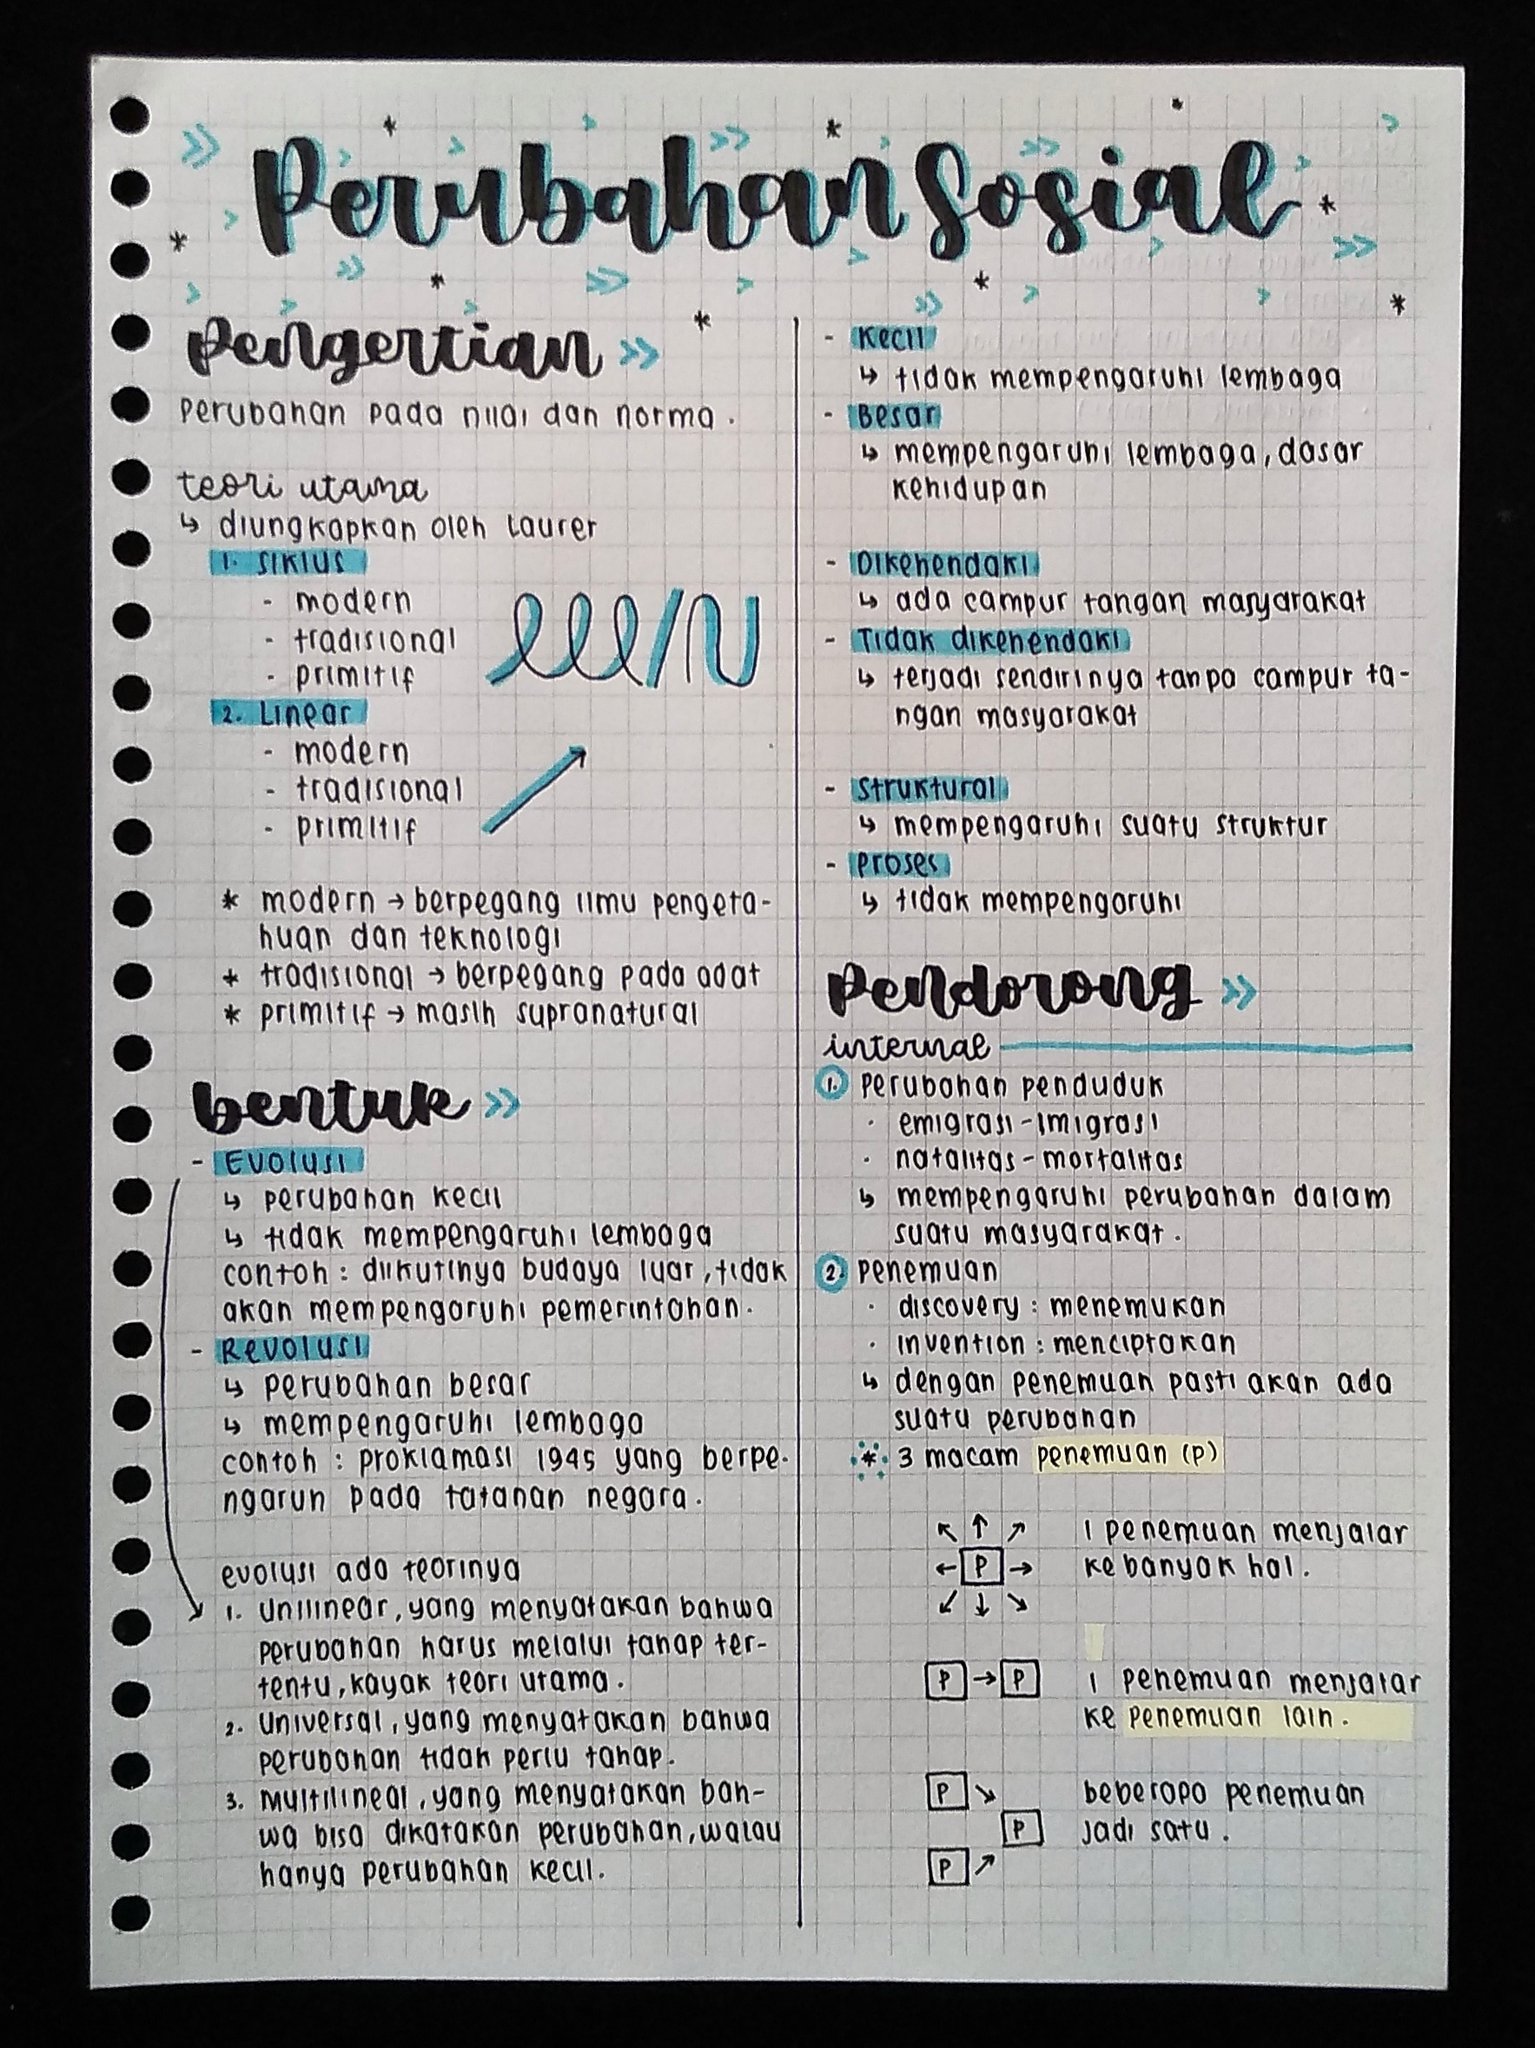 Perubahan Sosial
Pengertian >>
perubahan pada nilai dan norma.
teori utama
↳ diungkapkan oleh Laurer
1. SIKLUS
- modern
- tradisional
- primitif
2. Linear
- modern
- tradisional
- primitif
* modern → berpegang ilmu pengeta-
huan dan teknologi
* tradisional → berpegang pada adat
* primitif → masih supranatural
bentuk >>
- Evolusi
↳ perubahan kecil
↳ tidak mempengaruhi lembaga
contoh : diikutinya budaya luar, tidak
akan mempengaruhi pemerintahan.
- Revolusi
↳ perubahan besar
↳ mempengaruhi lembaga
contoh : proklamasi 1945 yang berpe-
ngaruh pada tatanan negara.
evolusi ada teorinya
1. Unilinear, yang menyatakan bahwa
perubahan harus melalui tahap ter-
tentu, kayak teori utama.
2. Universal, yang menyatakan bahwa
perubahan tidak perlu tahap.
3. Multilineal, yang menyatakan bah-
wa bisa dikatakan perubahan, walau
hanya perubahan kecil.
- Kecil
↳ tidak mempengaruhi lembaga
- Besar
↳ mempengaruhi lembaga, dasar
kehidupan
- Dikehendaki
↳ ada campur tangan masyarakat
- Tidak dikehendaki
↳ terjadi sendirinya tanpa campur ta-
ngan masyarakat
- Struktural
↳ mempengaruhi suatu struktur
- Proses
↳ tidak mempengaruhi
Pendorong >>
internal
1. Perubahan penduduk
· emigrasi - imigrasi
· natalitas - mortalitas
↳ mempengaruhi perubahan dalam
suatu masyarakat.
2. Penemuan
· discovery : menemukan
· invention : menciptakan
↳ dengan penemuan pasti akan ada
suatu perubahan
* 3 macam penemuan (P)
↖ ↑ ↗ 1 penemuan menjalar
← P → ke banyak hal.
↙ ↓ ↘
P → P 1 penemuan menjalar
ke penemuan lain.
P ↘ beberapa penemuan
P jadi satu.
P ↗